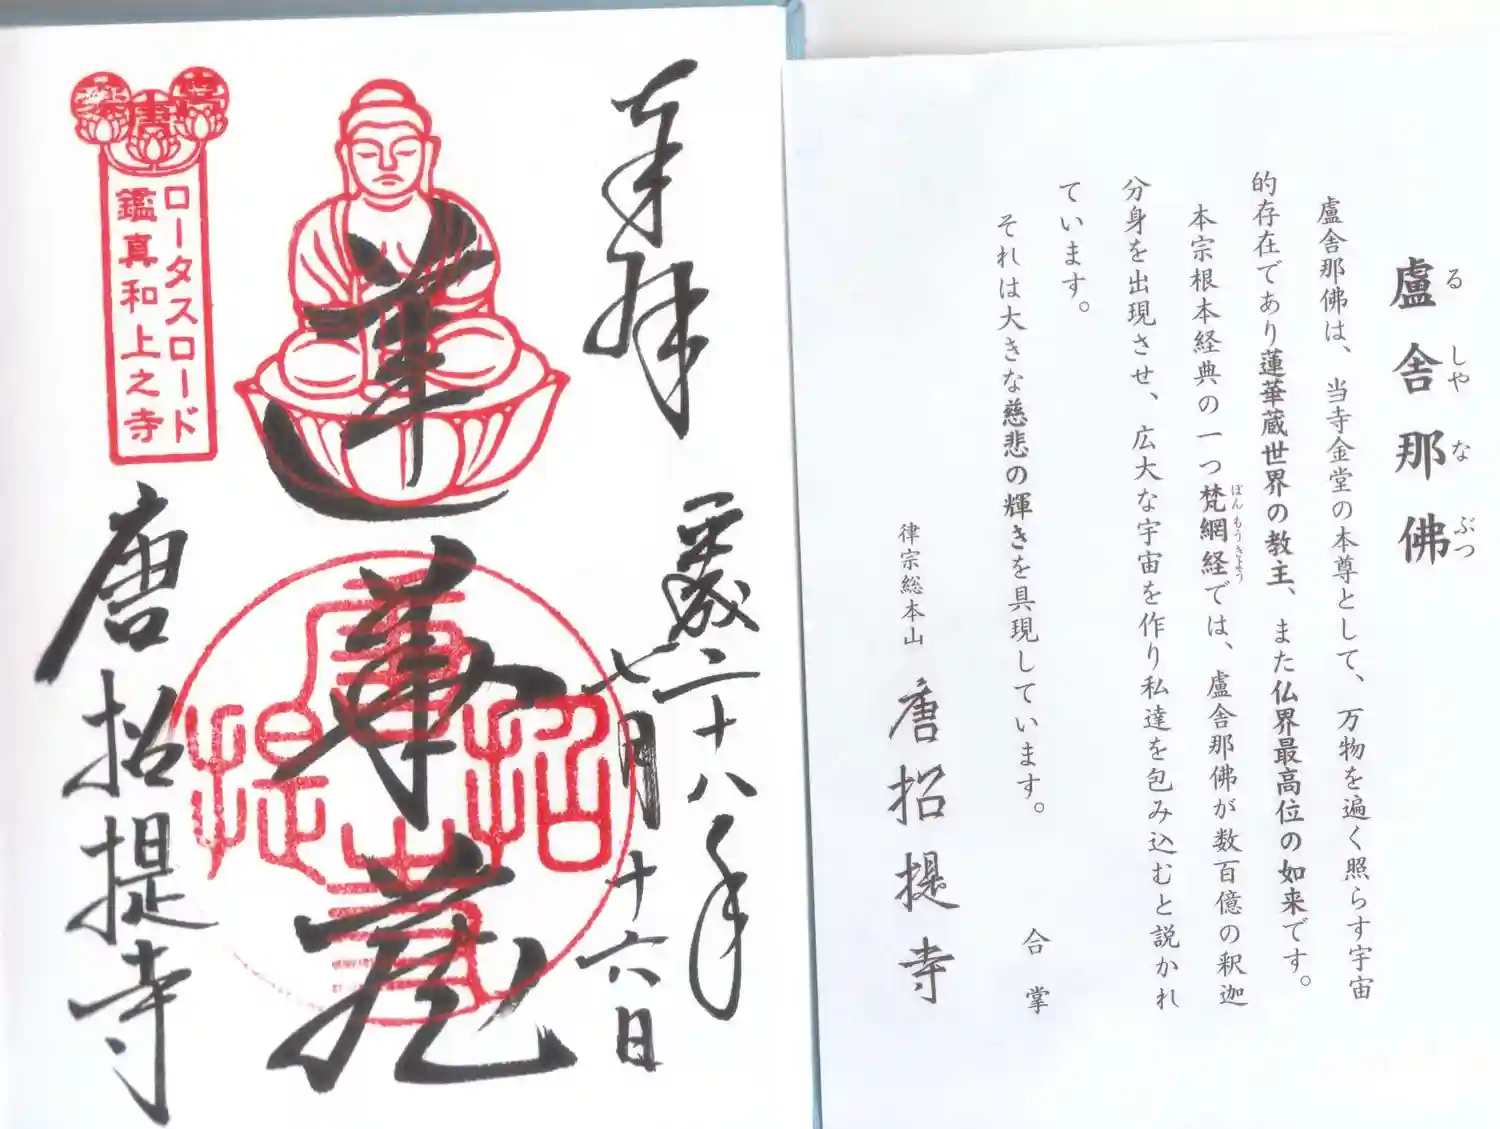 盧舎那佛
るしやなぶつ
盧舎那佛は、当寺金堂の本尊として、万物を遍く照らす宇宙
的存在であり蓮華蔵世界の教主、また仏界最高位の如来です。
本宗根本経典の一つ梵網経では、盧舎那佛が数百億の釈迦
ぼんもうきよう
分身を出現させ、広大な宇宙を作り私達を包み込むと説かれ
ています。
それは大きな慈悲の輝きを具現しています。
合掌
律宗総本山 唐招提寺
奉拝
平成二十八年
七月十六日
蓮華蔵
唐招提寺
唐
ロータスロード
鑑真和上之寺
唐招提寺